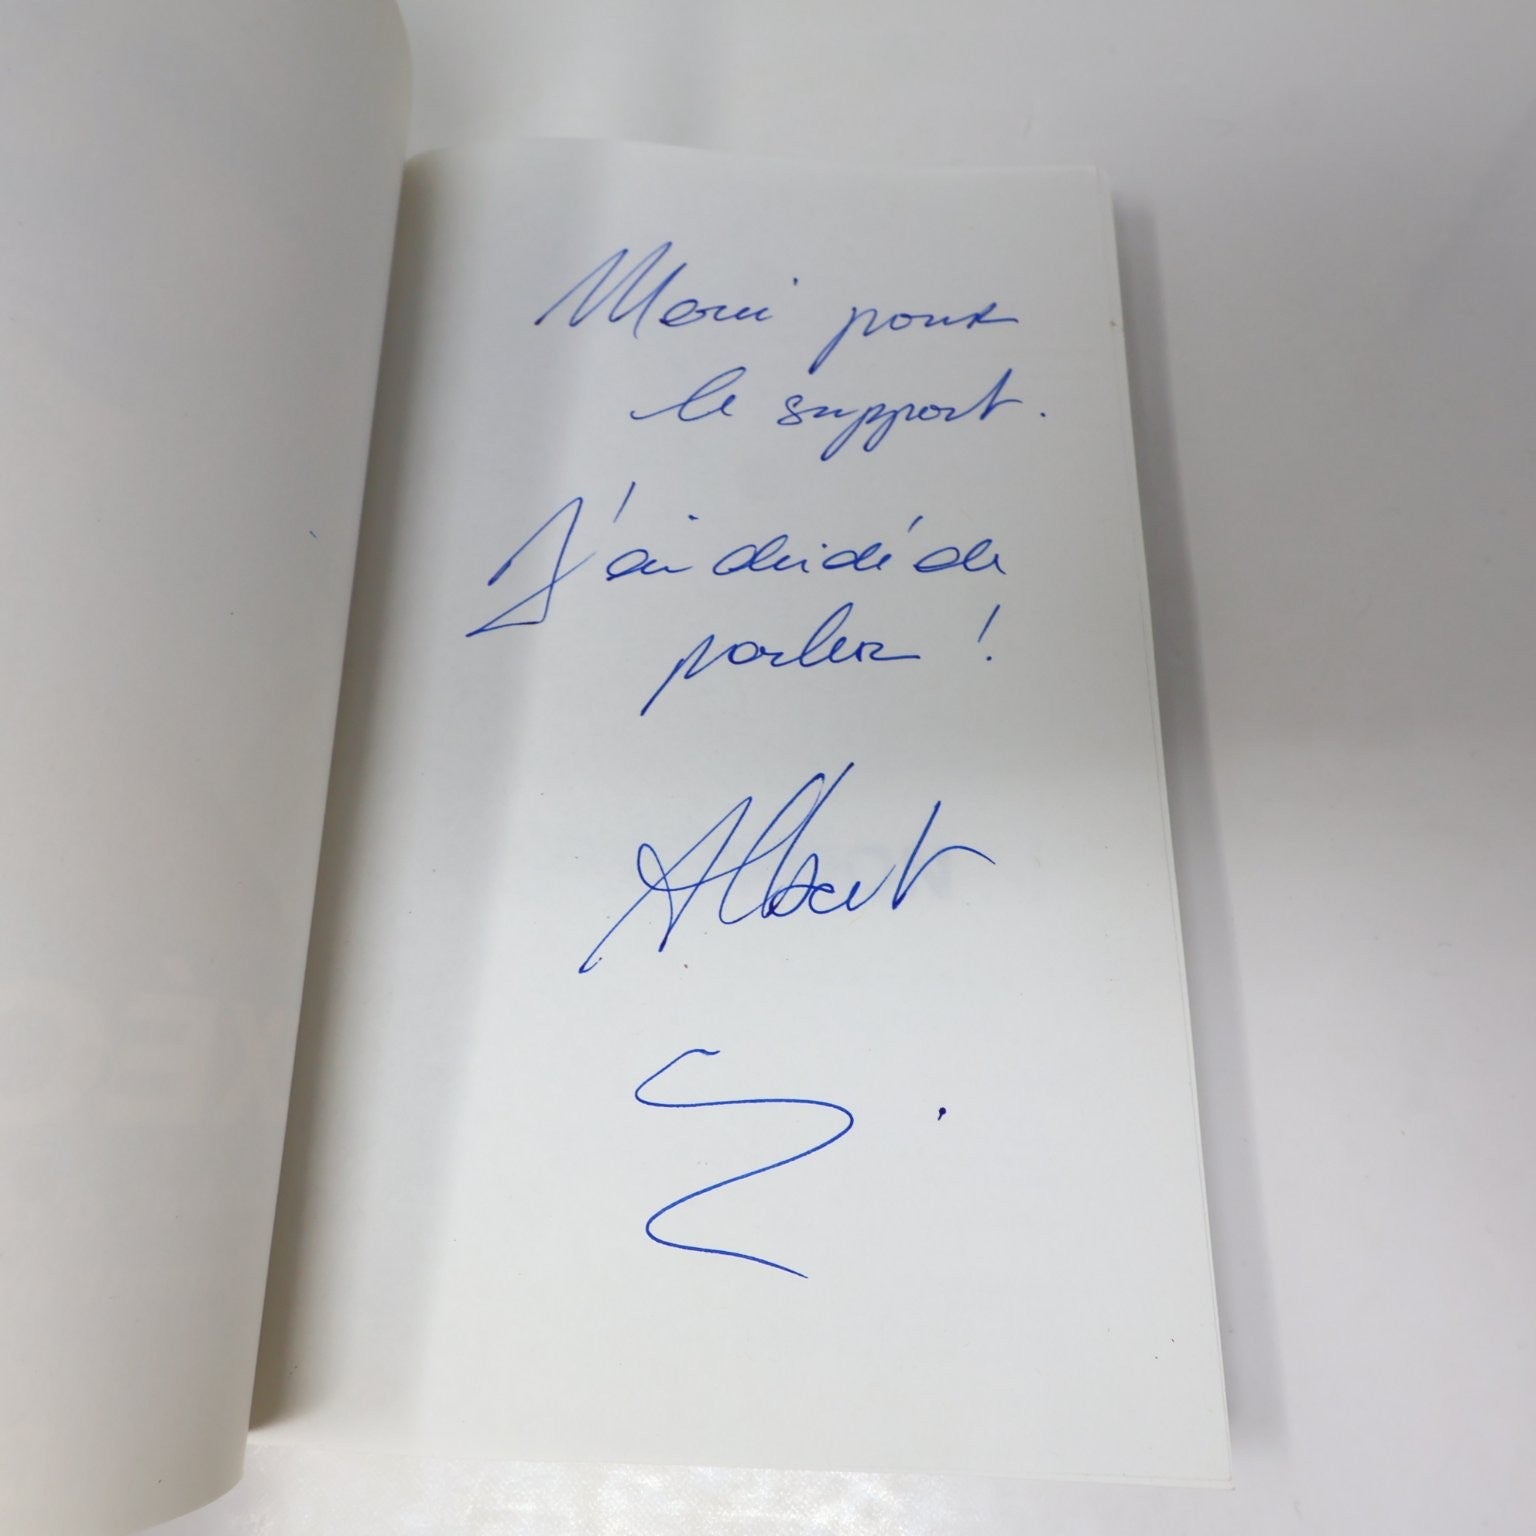 Merci pour
le support.
J'ai décidé de
parler !
Albert